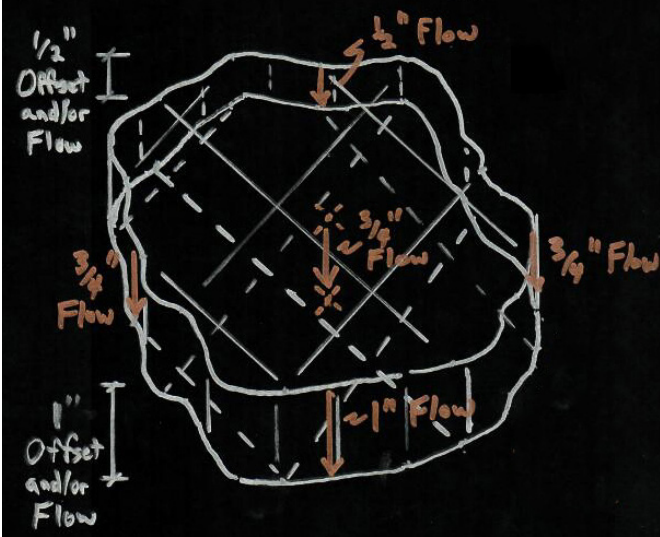 1/2"
Offset
and/or
Flow
1/2" Flow
3/4"
Flow
~3/4"
Flow
3/4" Flow
1"
Offset
and/or
Flow
~1" Flow